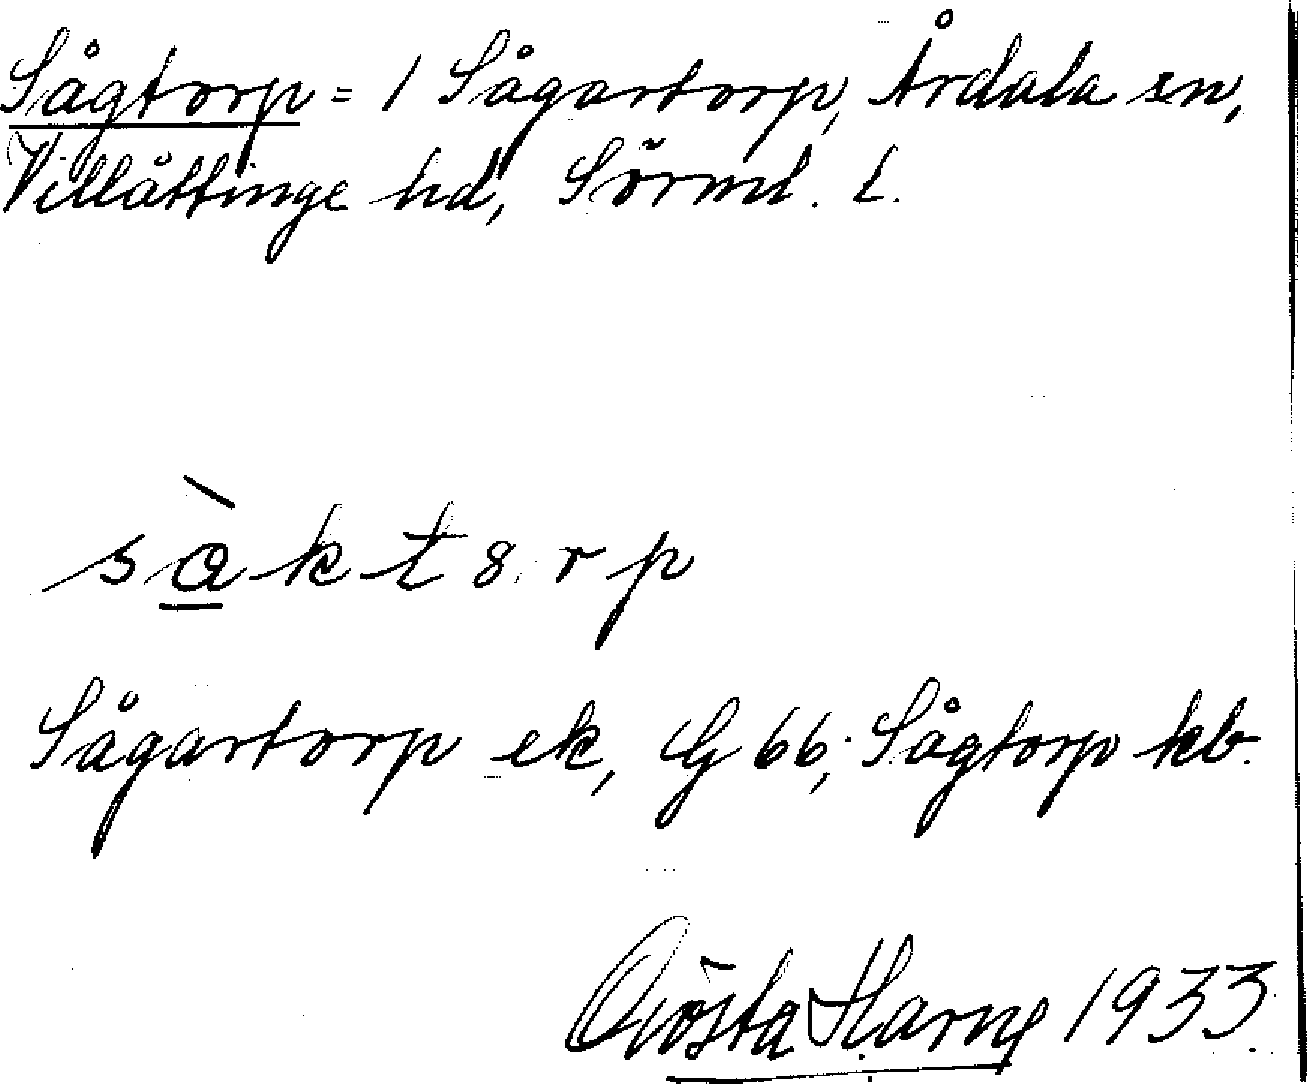 Sågtorp = 1 Sågartorp, Årdala sn,
Villåttinge hd, Sörml. l.
sàkt8rp
Sågartorp ek, G 66; Sågtorp kb.
Gösta Harne 1933.